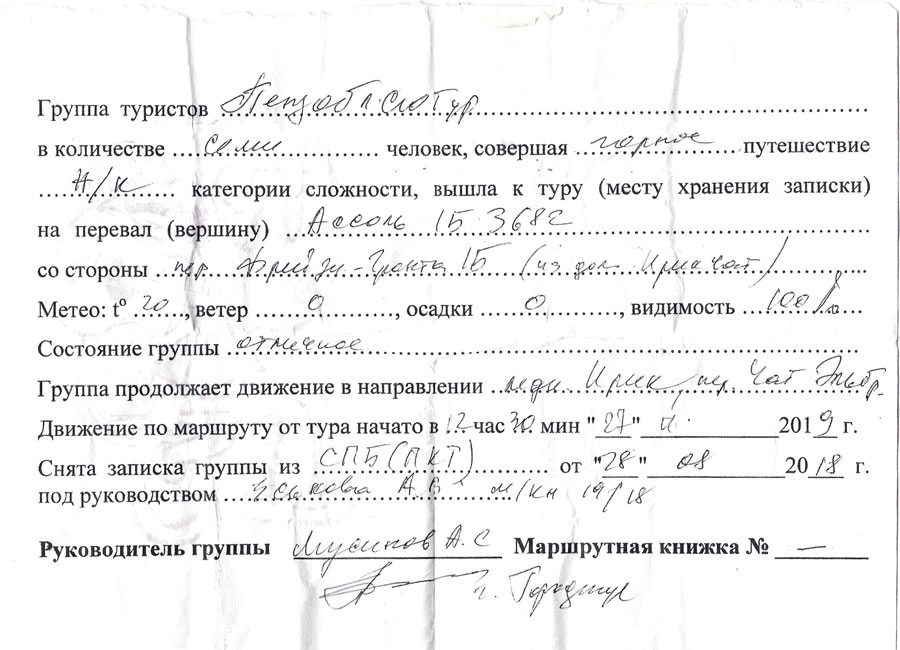 Группа туристов Пензоблспотур
в количестве семи человек, совершая горное путешествие
Н/К категории сложности, вышла к туру (месту хранения записки)
на перевал (вершину) Ассоль 1Б 3682
со стороны пер. Фрейзи-Гранта 1Б (из дол. Ирикчат)
Метео: t° 20, ветер 0, осадки 0, видимость 100%
Состояние группы отличное
Группа продолжает движение в направлении ледн. Ирик, пер. Чат Эльбр.
Движение по маршруту от тура начато в 12 час 30 мин "27" 2019 г.
Снята записка группы из СПБ (ПКТ) от "28" 08 2018 г.
под руководством Еськова А.В м/кн 19/18
Руководитель группы А.С Маршрутная книжка № —
г.